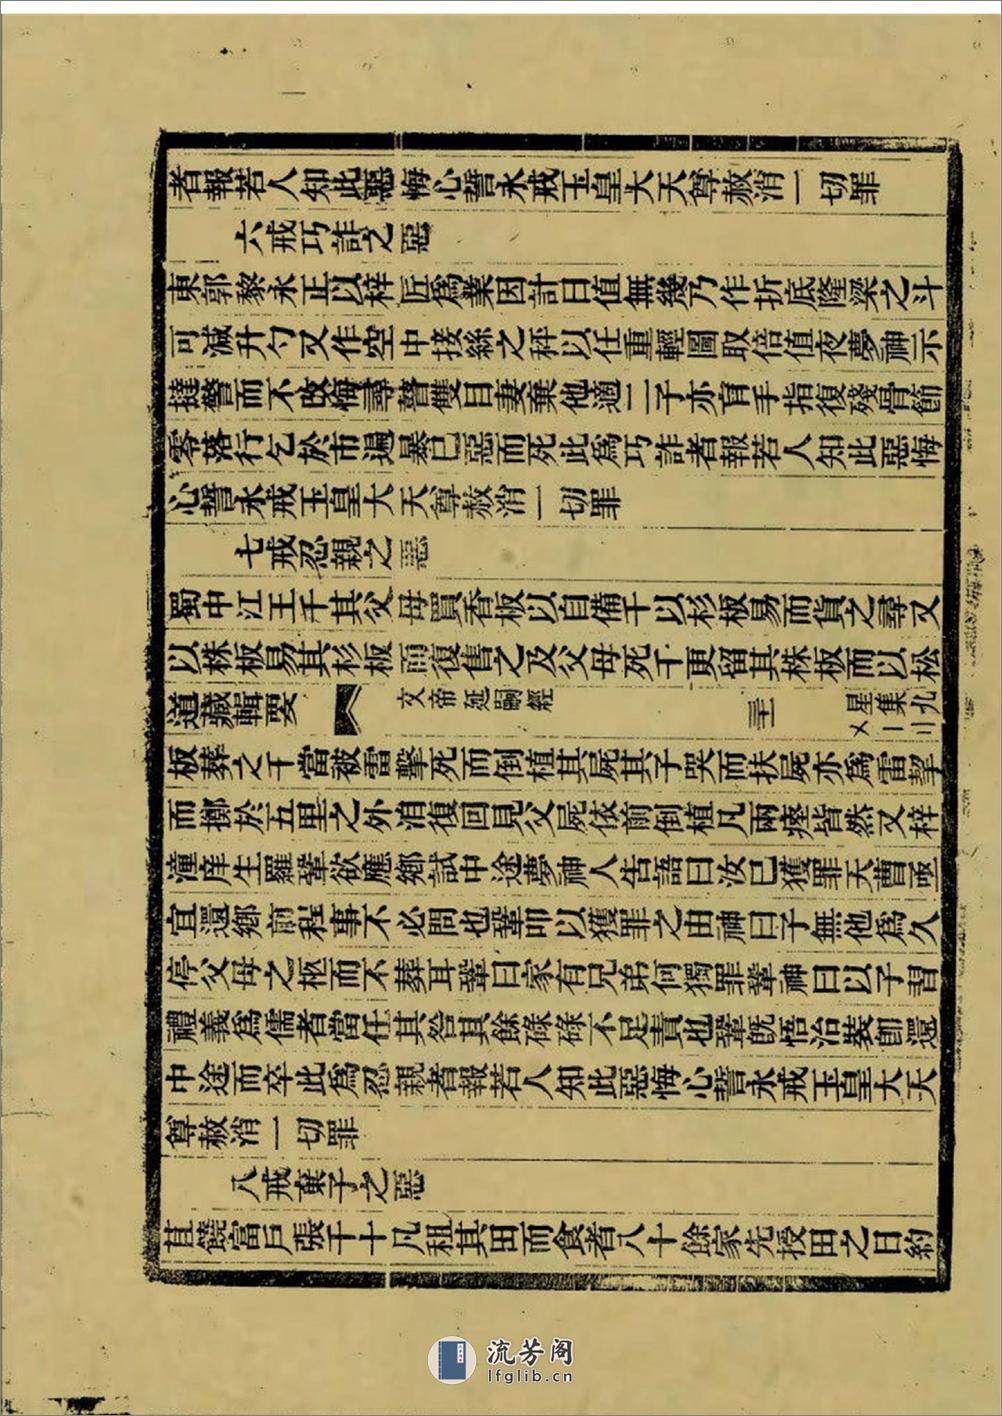 者報若人知此惡悔心誓永戒玉皇大天尊赦消一切罪
六戒巧詐之惡
東郭黎永正以梓匠爲業因計日值無幾乃作折底隆梁之斗
可減升勺又作空中接絲之秤以任重輕圖取倍值夜夢神示
撻警而不改悔尋瞽雙目妻棄他適二子亦盲手指復殘骨節
零落行乞於市遍暴已惡而死此爲巧詐者報若人知此惡悔
心誓永戒玉皇大天尊赦消一切罪
七戒忍親之惡
蜀中江王千其父母買香板以自備千以杉板易而貨之尋又
以株板易其杉板而復售之及父母死千更留其株板而以松
道藏輯要
文帝延嗣經
星集九
板葬之千當被雷擊死而倒植其屍其子哭而扶屍亦爲雷挈
而擲於五里之外洎復回見父屍依前倒植凡兩瘞皆然又梓
潼庠生羅鞏欲應鄉試中途夢神人告語曰汝已獲罪天曹亟
宜還鄉前程事不必問也鞏叩以獲罪之由神曰子無他爲久
停父母之柩而不葬耳鞏曰家有兄弟何獨罪鞏神曰以子習
禮義爲儒者當任其咎其餘碌碌不足責也鞏旣悟治裝卽還
中途而卒此爲忍親者報若人知此惡悔心誓永戒玉皇大天
尊赦消一切罪
八戒棄子之惡
苴饒富戶張千十凡租其田而食者八十餘家先授田之日約
流芳阁
lfglib.cn